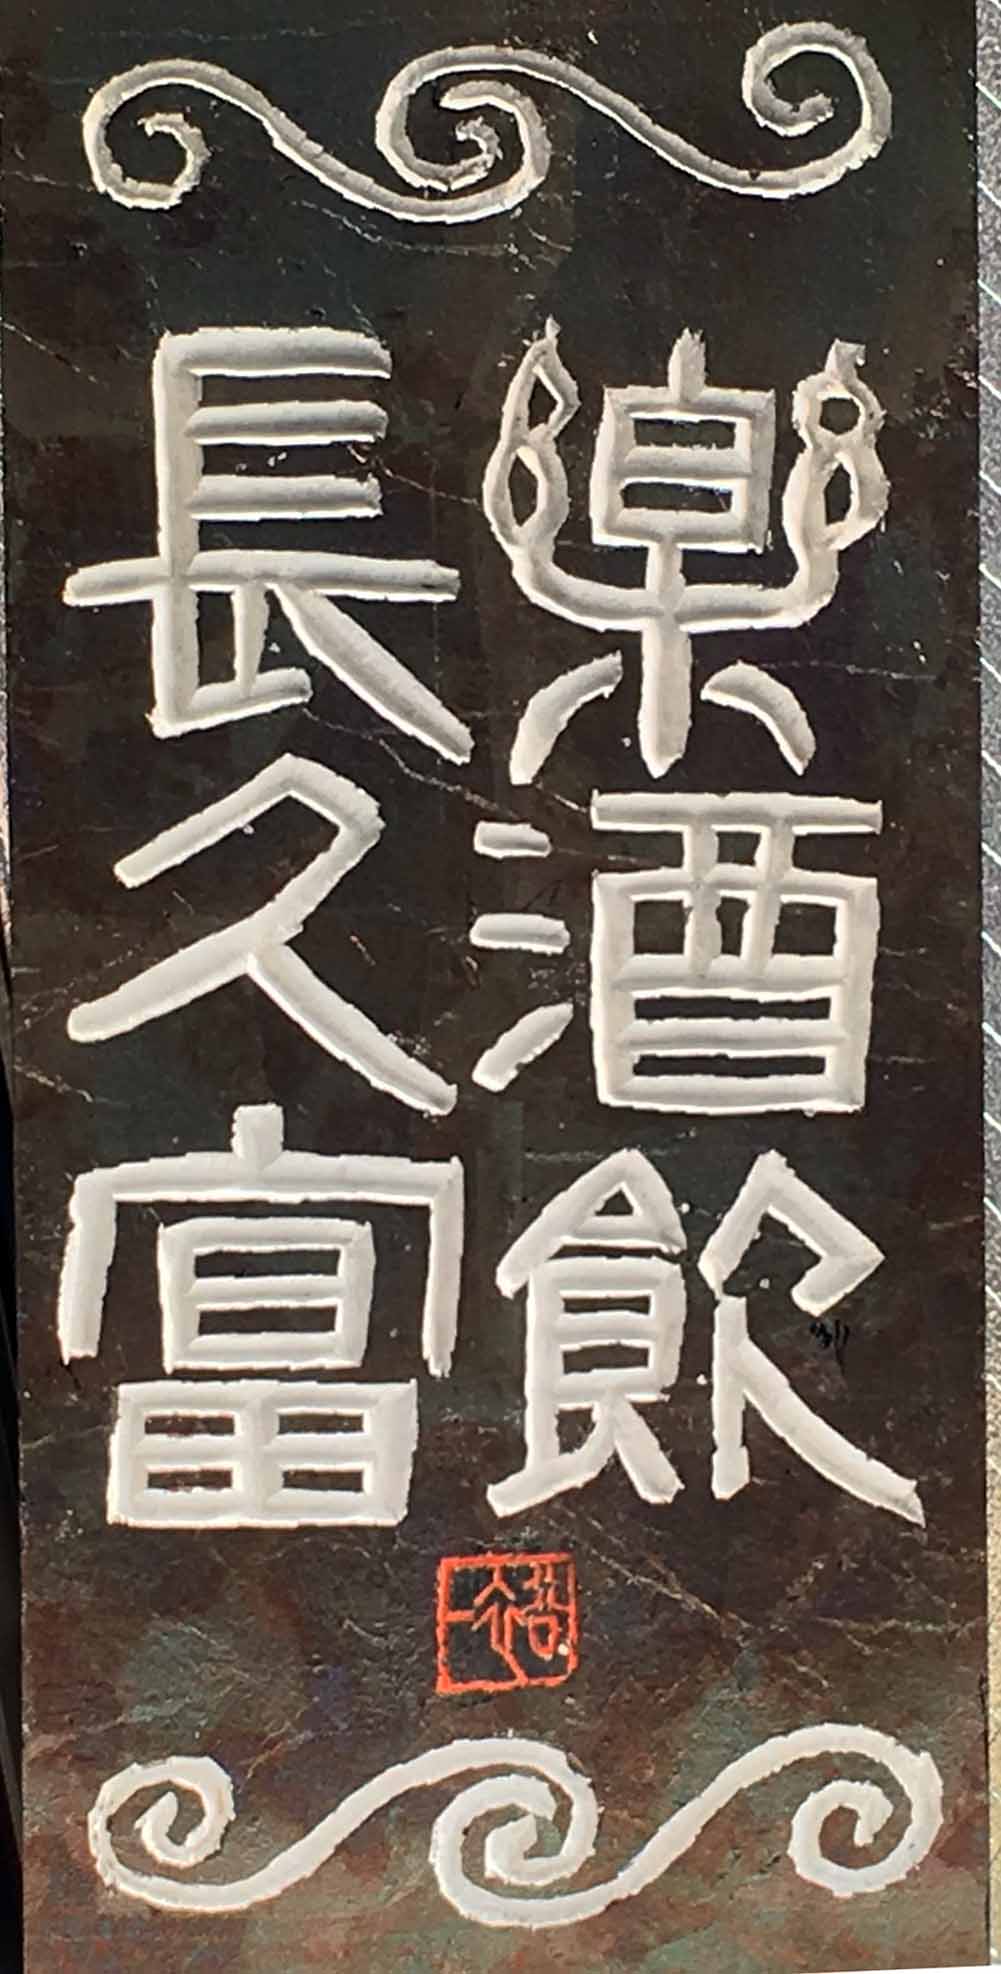 樂酒飲
長久富